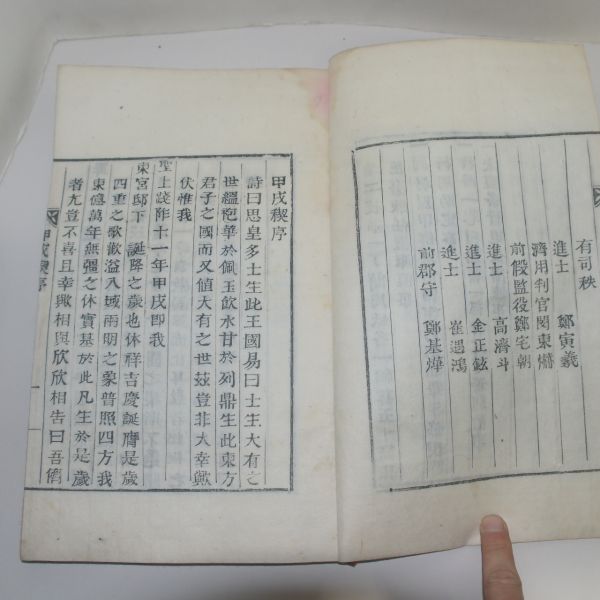 有司秩
進士 鄭寅羲
濟用判官閔東爀
前假監役鄭宅朝
進士 高濟斗
進士 金正鉉
進士 崔遇鴻
前郡守 鄭基燁
甲戌稧序
詩曰思皇多士生此王國易曰士生大有之
世縕袍華於佩玉飲水甘於列鼎生此東方
君子之國而又値大有之世玆豈非大幸歟
伏惟我
聖上踐阼十一年甲戌卽我
東宮邸下 誕降之歲也休祥吉慶誕膺是歲
四重之歌歡溢八域兩明之蒙普照四方我
東億萬年無疆之休實基於此凡生於是歲
者尤豈不喜且幸歟相與欣欣相告曰吾儕
甲戌稧序
一